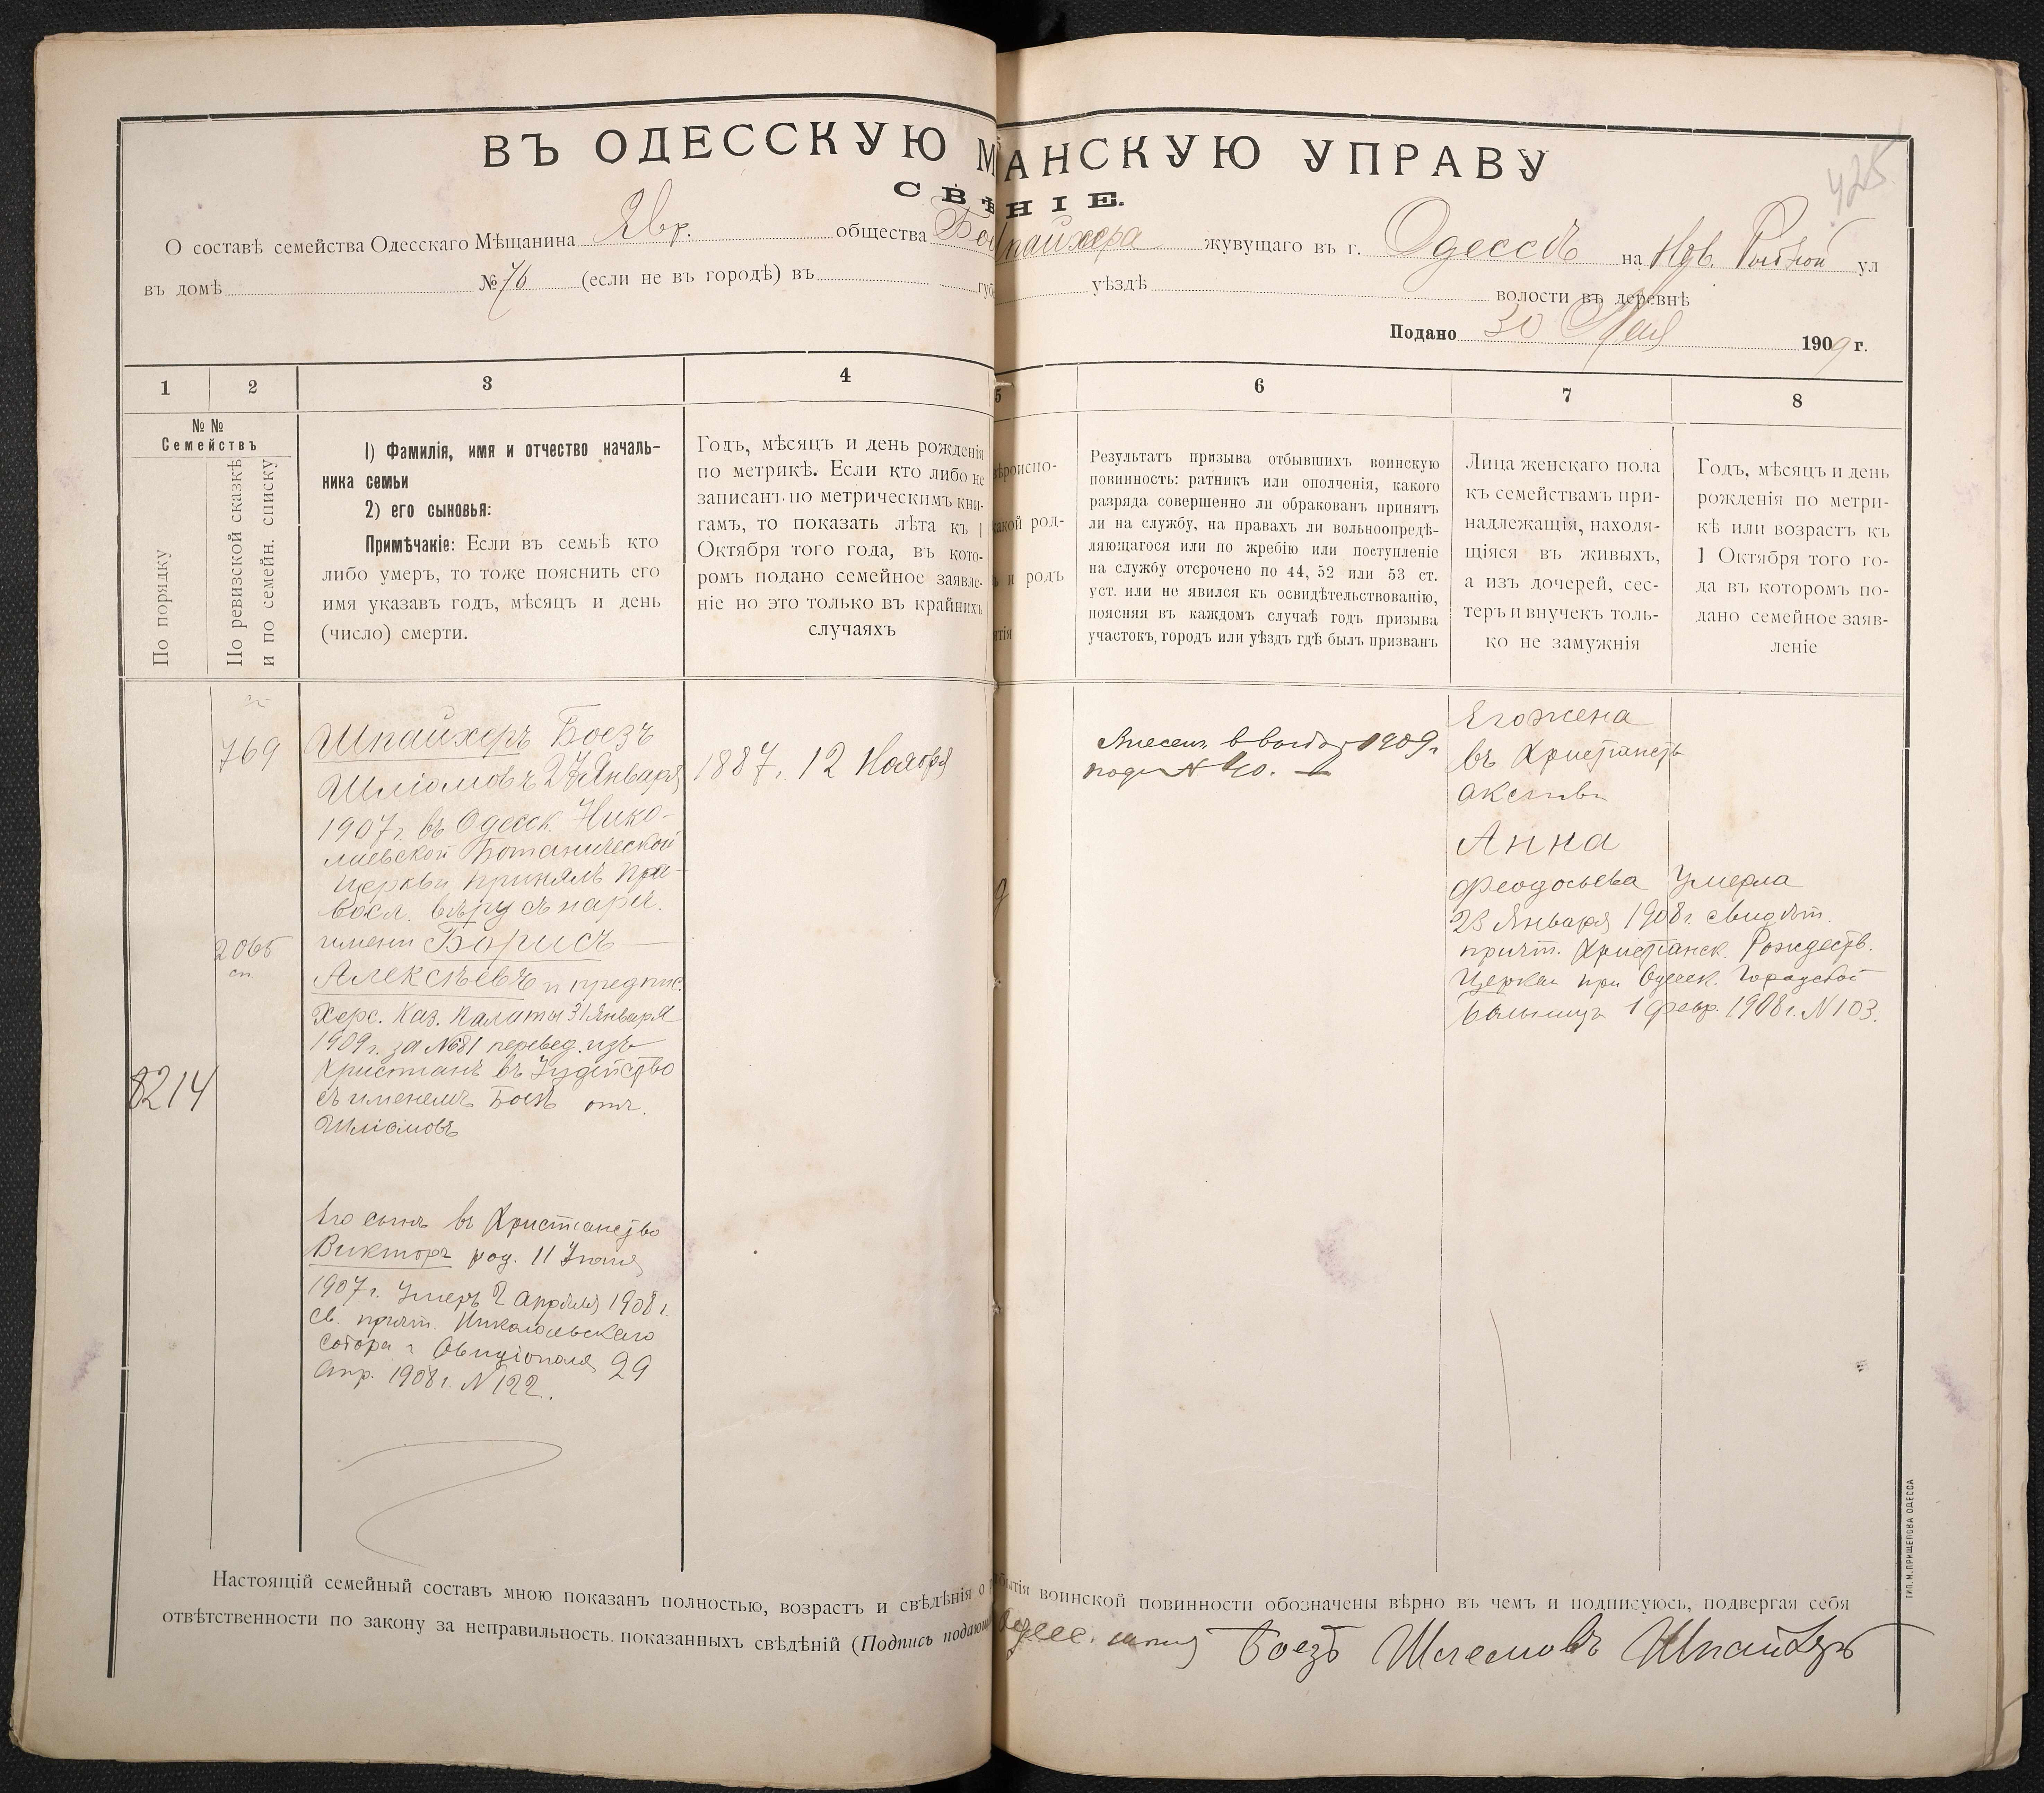 ВЪ ОДЕССКУЮ М АНСКУЮ УПРАВУ
СВѢ НІЕ.
425
О составѣ семейства Одесскаго Мѣщанина Явр. общества Бо пайхера жувущаго въ г. Одессѣ на Нов. Рыбной ул
въ домѣ № 76 (если не въ городѣ) въ губ уѣздѣ волости въ деревнѣ
Подано 30 1909 г.
1 2 3 4 5 6 7 8
№№
Семействъ
По порядку
По ревизской сказкѣ
и по семейн. списку
I) Фамилія, имя и отчество началь-
ника семьи
2) его сыновья:
Примѣчакіе: Если въ семьѣ кто
либо умеръ, то тоже пояснить его
имя указавъ годъ, мѣсяцъ и день
(число) смерти.
Годъ, мѣсяцъ и день рожденія
по метрикѣ. Если кто либо не
записанъ по метрическимъ кни-
гамъ, то показать лѣта къ 1
Октября того года, въ кото-
ромъ подано семейное заявле-
ніе но это только въ крайнихъ
случаяхъ
вѣроиспо-
какой род-
ь и родъ
нтія
Результатъ призыва отбывшихъ воинскую
повинность: ратникъ или ополченія, какого
разряда совершенно ли обракованъ принятъ
ли на службу, на правахъ ли вольноопредѣ-
ляющагося или по жребію или поступленіе
на службу отсрочено по 44, 52 или 53 ст.
уст. или не явился къ освидѣтельствованію,
поясняя въ каждомъ случаѣ годъ призыва
участокъ, городъ или уѣздъ гдѣ былъ призванъ
Лица женскаго пола
къ семействамъ при-
надлежащія, находя-
щіяся въ живыхъ,
а изъ дочерей, сес-
теръ и внучекъ толь-
ко не замужнія
Годъ, мѣсяцъ и день
рожденія по метри-
кѣ или возрастъ къ
1 Октября того го-
да въ которомъ по-
дано семейное заяв-
леніе
769
2065
сп.
8214
Шпайхеръ Боезъ
Шліомовъ 27 Января
1907 г. въ Одесск. Нико-
лаевской Ботанической
Церкви принялъ пра-
восл. вѣру съ нареч.
имени Борисъ
Алексѣевъ и предпис.
Херс. Каз. Палаты 31 Января
1909 г. за № 681 перевед. изъ
христіанъ въ Іудейство
съ именемъ Боезъ отч.
Шліомовъ
Его сынъ въ Христіанство
Викторъ род. 11 Іюня
1907 г. Умеръ 2 апрѣля 1908 г.
св. причт. Николаевскаго
Собора г. Овидіополя 29
Апр. 1908 г. № 122.
1887 г. 12 Ноября
Внесенъ 1909 г
подъ №
Его жена
въ Христіанств
Анна
Феодосьева Умерла
23 Января 1908 г. свидѣт.
причт. Христіанск. Рождеств.
Церкви при Одесск. Городской
больницѣ 1 февр. 1908 г. № 103.
Настоящій семейный составъ мною показанъ полностью, возрастъ и свѣдѣнія о бытія воинской повинности обозначены вѣрно въ чемъ и подписуюсь, подвергая себя
отвѣтственности по закону за неправильность показанныхъ свѣдѣній (Подпись подающ Боезъ Шлемовъ Шпайхеръ
ТИП. М. ПРИЩЕПОВА ОДЕССА